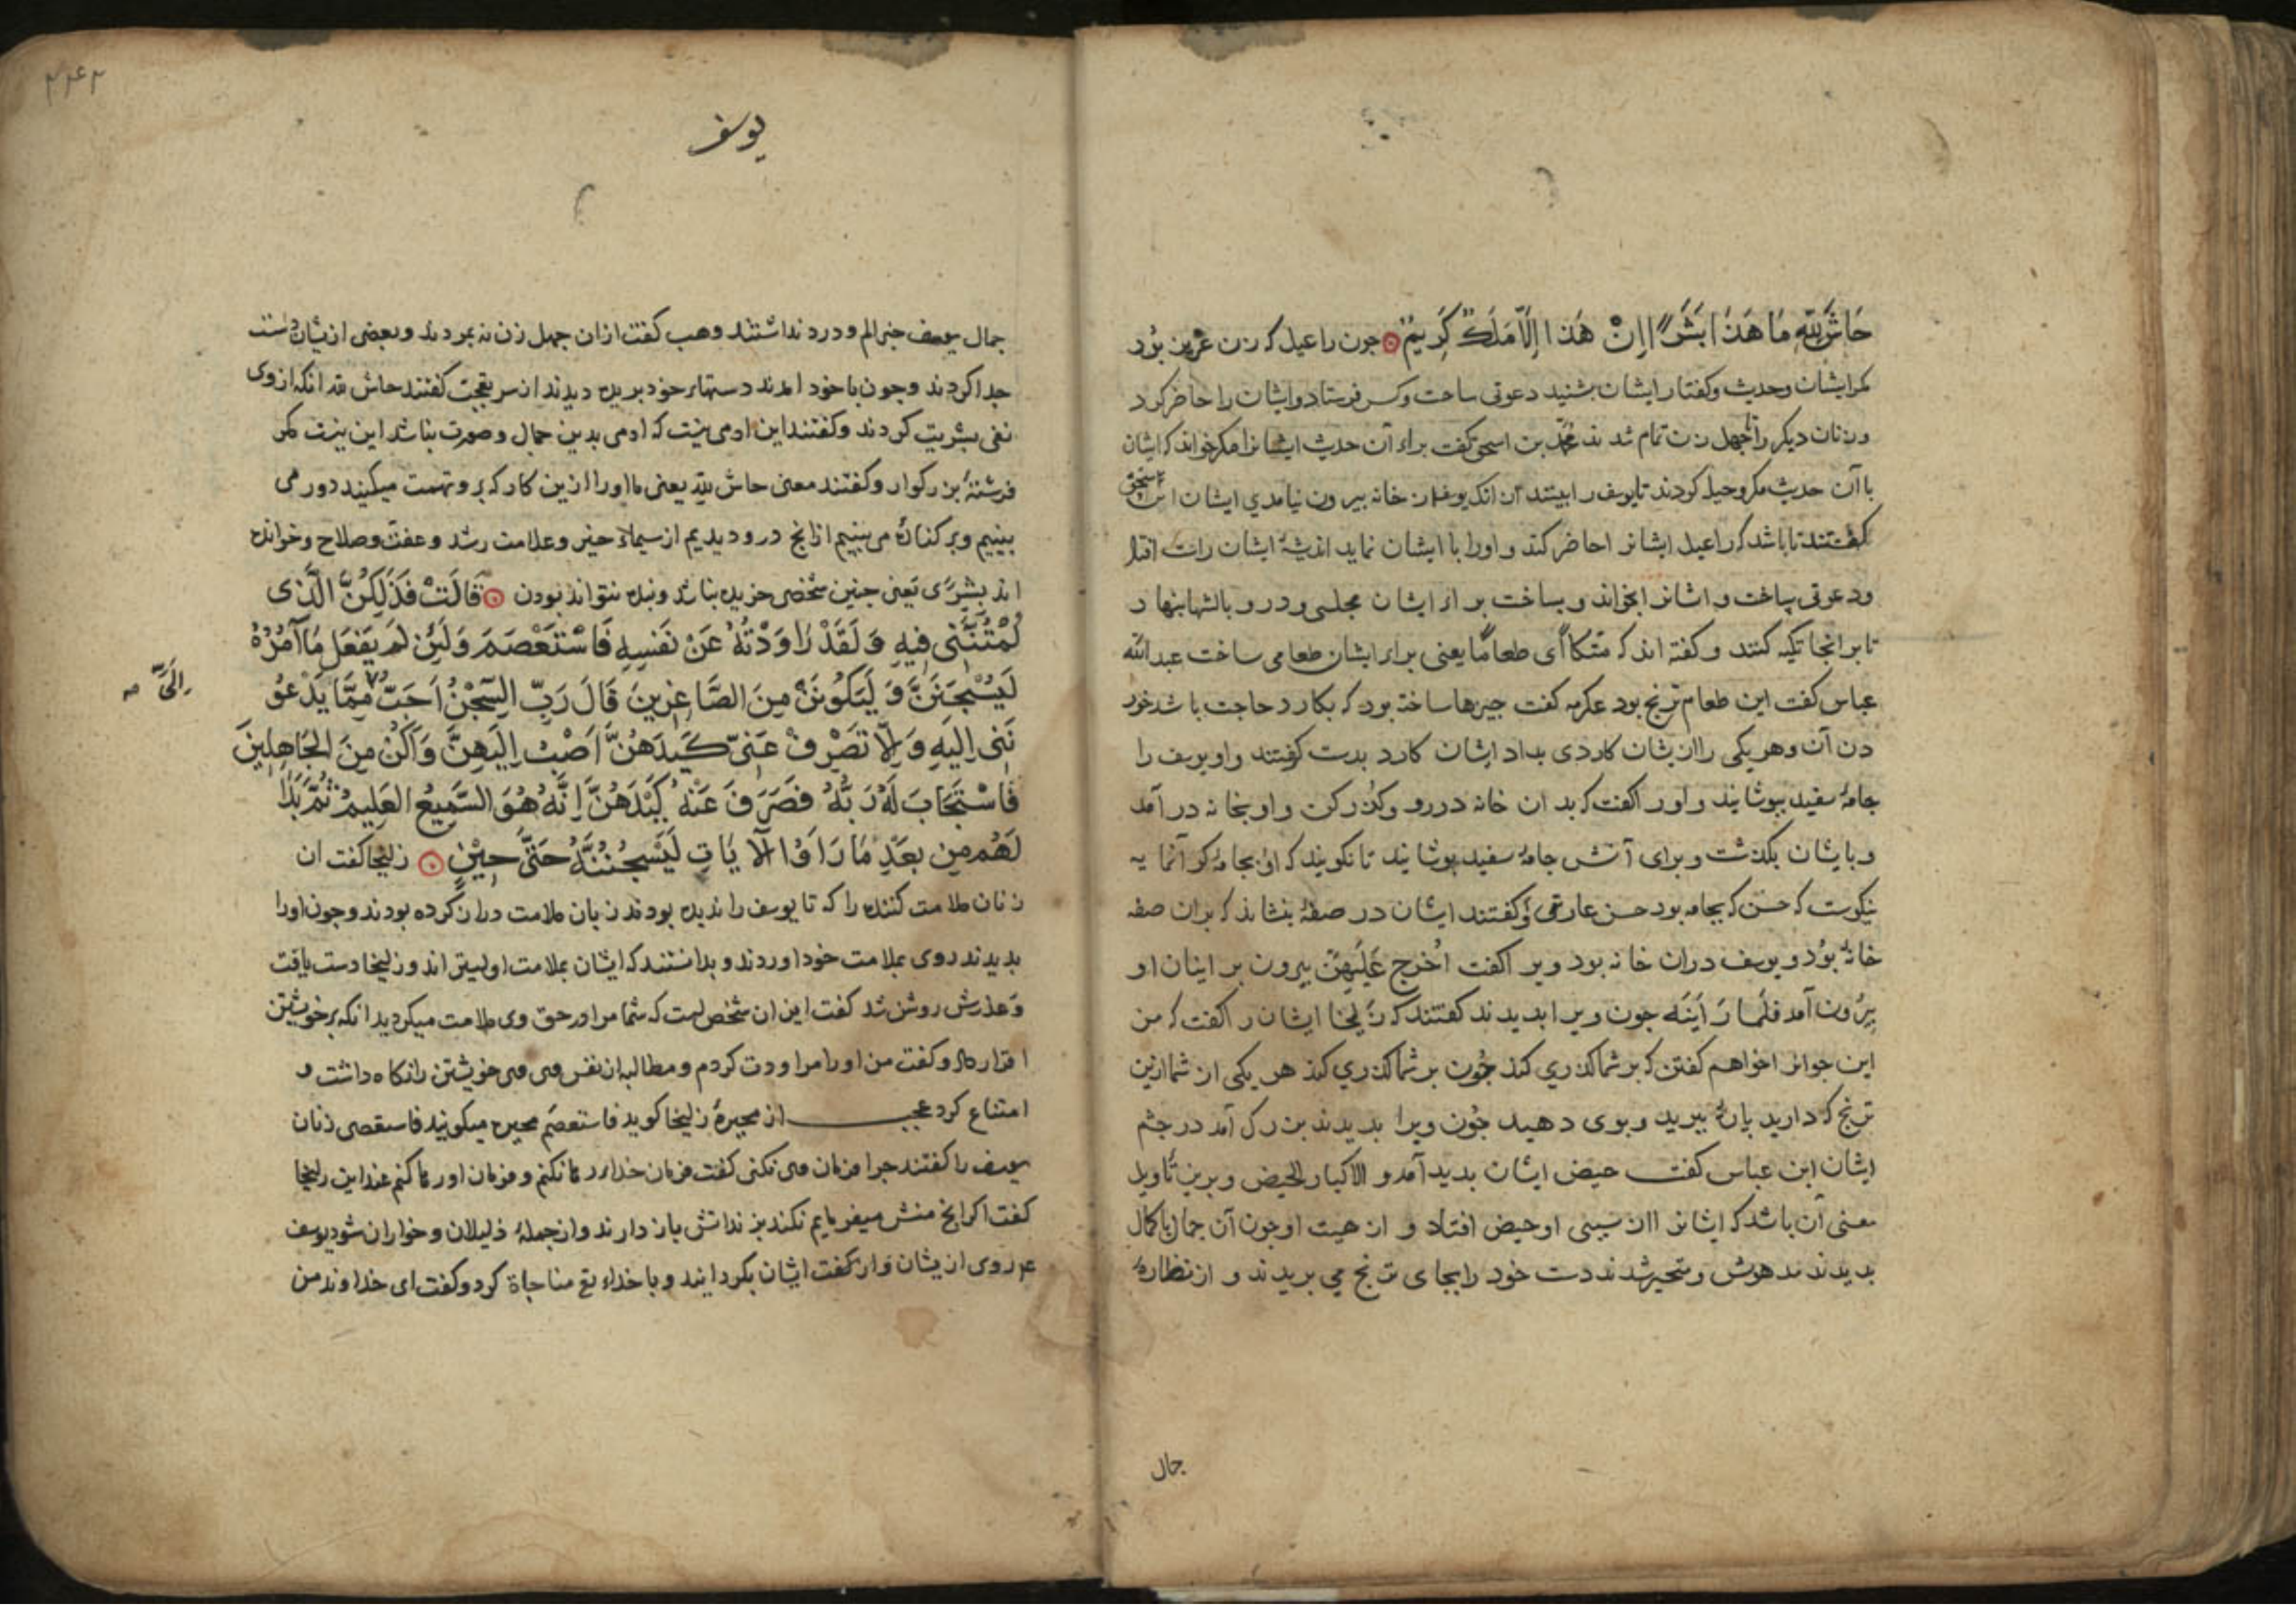 حَاشَ لِلّهِ مَا هَذَا بَشَرًا اِنْ هَذَا اِلَّا مَلَكٌ كَرِيمٌ جون راعيل كه زن عزيز بود
مكر ايشان وحديث وكفتار ايشان بشنيد دعوتى ساخت وكس فرستاد وايشان را حاضر كرد
وزنان ديكر را تا جهل زن تمام شدند محمد بن اسحق كفت براء آن حديث ايشانرا مكر خواند كه ايشان
با آن حديث مكر وحيله كردند تا يوسف را ببينند از انك يوسف از خانه بيرون نيامدي ايشان اين سخن
كفتند تا باشد كه راعيل ايشانرا حاضر كند و او را با ايشان نمايد انديشۀ ايشان راست افتاد
ودعوتى بساخت و ايشانرا بخواند و بساخت براء ايشان مجلسى ودرو بالشها بنهاد
تا بر آنجا تكيه كنند و كفته اند كه متكاً اى طعامًا يعنى براء ايشان طعامى ساخت عبدالله
عباس كفت اين طعام ترنج بود عكرمه كفت جيزها ساخته بود كه بكارد حاجت باشد خور
دن آن وهر يكى را از يشان كاردى بداد ايشان كارد بدست كرفتند واو يوسف را
جامۀ سفيد بپوشانيد و او را كفت كه بدان خانه در رو وكذر كن و او بخانه در آمد
و بايشان بكذشت و براى آنش جامۀ سفيد بپوشانيد تا نكويند كه او بجامه كو آنما يه
نيكوست كه حسن كه بجامه بود حسن عارتى و كفتند ايشان در صفۀ بنشاند كه بران صفه
خانۀ بود و يوسف دران خانه بود وير اكفت اُخرج عَلَيهِنّ بيرون بر اينان او
بيرون آمد فلما رَاَينَه جون ويرا بديدند كفتند كه زليخا ايشان را كفت كه من
اين جوانرا خواهم كفتن كه بر شما كذري كند جون بر شما كذري كند هر يكى از شما ازين
ترنج كه داريد پارۀ ببريد و بوى دهيد جون ويرا بديدند بزرك آمد در جشم
ايشان ابن عباس كفت حيض ايشان بديد آمد و الاكبار الحيض و برين تأويل
معنى آن باشد كه ايشانرا از سببى او حيض افتاد و از هيبت او جون آن جمال باكمال
بديدند مدهوش و متحير شدند دست خود را بجاى ترنج مي بريدند و از نظارۀ
جمال
٢٤٢
يوسف
جمال يوسف خبر الم و درد نداشتند وهب كفت از ان جهل زن نه بمردند وبعضى ازيشان دست
جدا كردند وجون باخود امدند دستهاء خود بريده ديدند از سر تعجب كفتند حاش لله انكه از وى
نفى بشريت كردند وكفتند اين ادمى نيست كه ادمى بدين جمال وصورت نباشد اين نيست مكر
فرشتۀ بزركوار وكفتند معنى حاش لله يعنى ما او را ازين كار كه برو تهمت ميكنيد دور مى
بينيم وبر كنارۀ مى بينيم از انج درو ديديم از سيماء خير وعلامت رشد وعفت وصلاح وخوانده
اند بِشِرًى يعنى جنين شخصى خريده نباشد وبنده نتواند بودن قَالَتْ فَذَلِكُنَّ الَّذى
لُمْتُنَّنى فِيهِ وَلَقَدْ رَاوَدْتُهُ عَنْ نَفْسِهِ فَاسْتَعْصَمَ وَلَئِنْ لَمْ يَفْعَلْ مَا آمُرُهُ
لَيُسْجَنَنَّ وَلَيَكُونَنْ مِنَ الصَّاغِرِينَ قَالَ رَبِّ السِّجْنُ اَحَبُّ مِمَّا يَدْعُو
اِلَىَّ صح
نَنِى اِلَيهِ وَاِلَّا تَصْرِفْ عَنِّى كَيدَهُنَّ اَصْبُ اِلَيهِنَّ وَاَكُنْ مِنَ الجَاهِلِينَ
فَاسْتَجَابَ لَهُ رَبُّهُ فَصَرَفَ عَنْهُ كَيْدَهُنَّ اِنَّهُ هُوَ السَّمِيعُ العَلِيمُ ثُمَّ بَدَا
لَهُم مِن بَعدِ مَا رَاَوُا الآيَاتِ لَيَسْجُنُنَّهُ حَتَّى حِيْنٍ زليخا كفت ان
زنان ملامت كننده را كه تا يوسف را نديده بودند زبان ملامت دراز كرده بودند وجون او را
بديدند روى بملامت خود اوردند و بدانستند كه ايشان بملامت اوليتر اند وزليخا دست يافت
وعذرش روشن شد كفت اين ان شخص است كه شما مرا در حق وى ملامت ميكرديد انكه بر خويشتن
اقرار داد و كفت من او را مراودت كردم و مطالبه از نفس وى وى خويشتن را نكاه داشت و
امتناع كرد عجب از مجبرۀ زليخا كويد فاستعصم مجبره ميكويند فاستقصى زنان
يوسف را كفتند جرا فرمان وى نكنى كفت فرمان خداء را رها نكنم وفرمان او رها كنم عند اين زليخا
كفت اكر انج منش ميفرمايم نكند بزندانش باز دارند واز جملۀ ذليلان وخواران شود يوسف
عم روى ازيشان واز كفت ايشان بكردانيد وبا خداء تع مناجاة كرد وكفت اى خداوند من